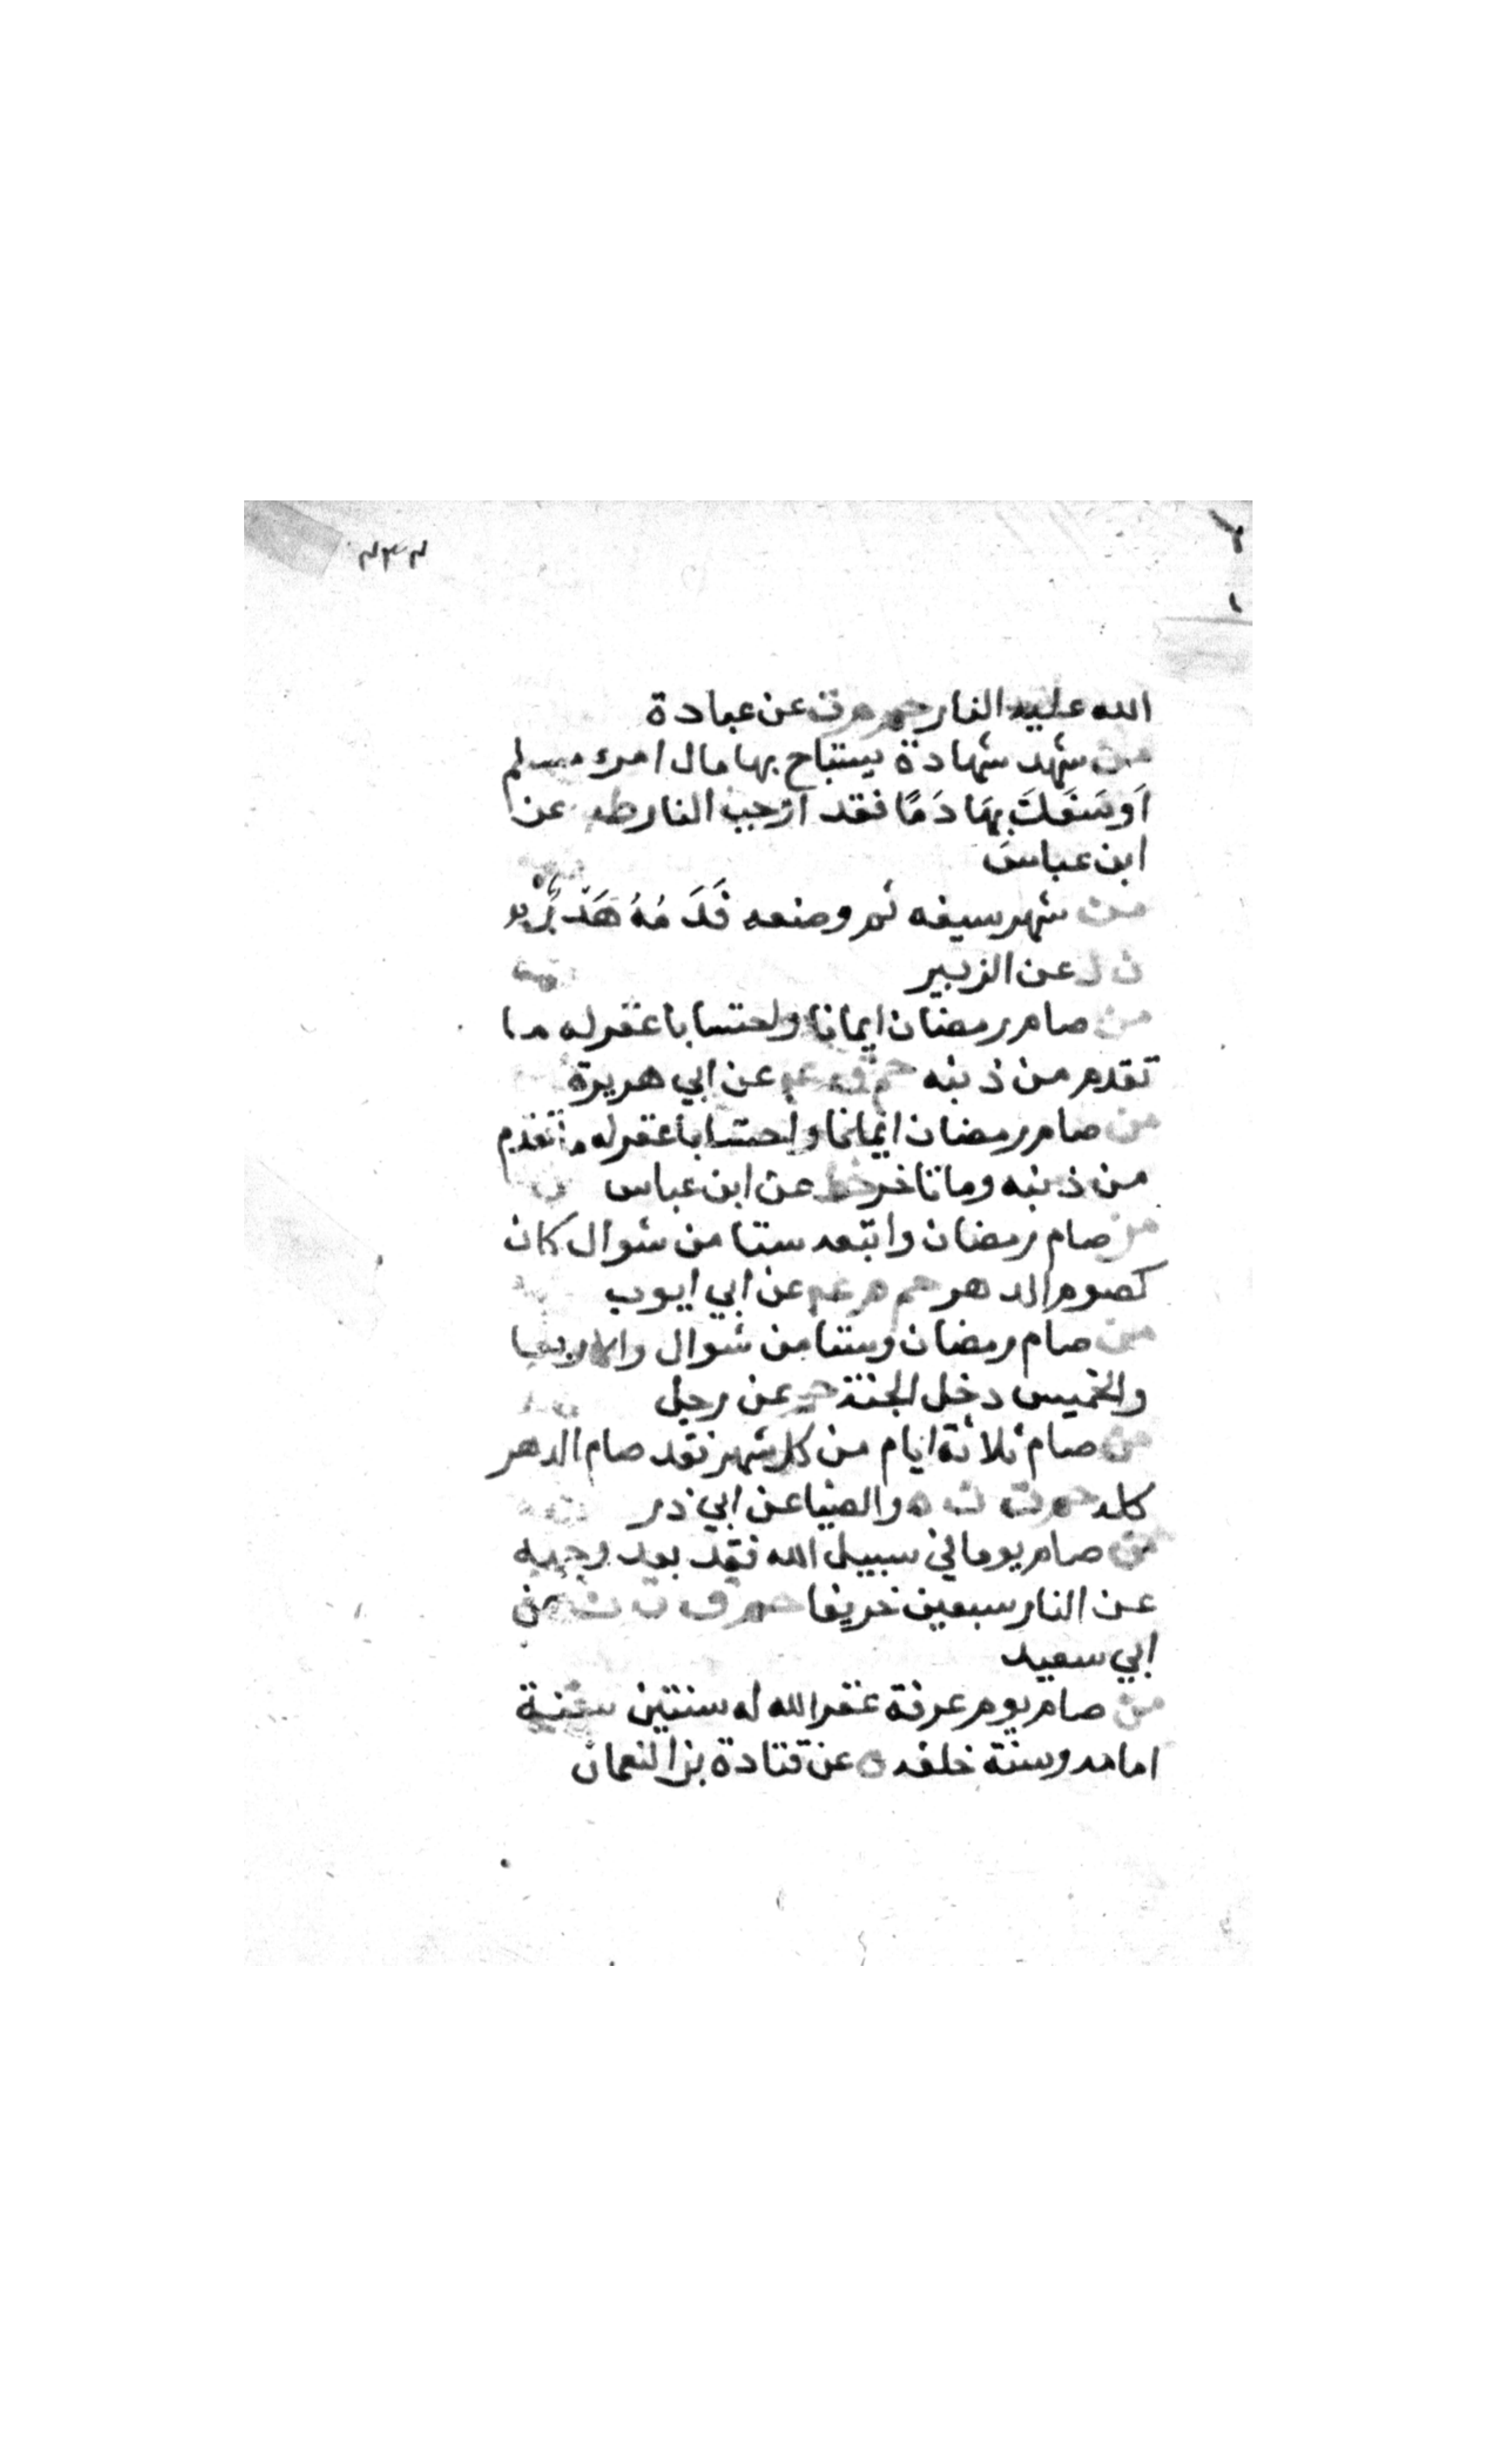 ٢٣٢
الله عليه النار حم م ت عن عبادة
من شهد شهادة يستباح بها مال امرء مسلم
اَو سَفَكَ بِهَا دَمًا فقد اوجب النار طب عن
ابن عباس
من شهر سيفه ثم وضعه فَدَمُهُ هَدْرٌ
ن ك عن الزبير
من صام رمضان ايمانا واحتسابا غفر له ما
تقدم من ذنبه حم ق عم عن ابي هريرة
من صام رمضان ايمانا واحتسابا غفر له ما تقدم
من ذنبه وما تاخر خط عن ابن عباس
من صام رمضان واتبعه ستا من شوال كان
كصوم الدهر حم م عم عن ابي ايوب
من صام رمضان وستا من شوال والاربعا
والخميس دخل الجنة حم عن رجل
من صام ثلاثة ايام من كل شهر فقد صام الدهر
كله حم ت ن ه والضيا عن ابي ذر
من صام يوما في سبيل الله فقد بعد وجهه
عن النار سبعين خريفا حم ق ت ن عن
ابي سعيد
من صام يوم عرفة غفر الله له سنتين سنة
امامه وسنة خلفه ه عن قتادة بن النعمان